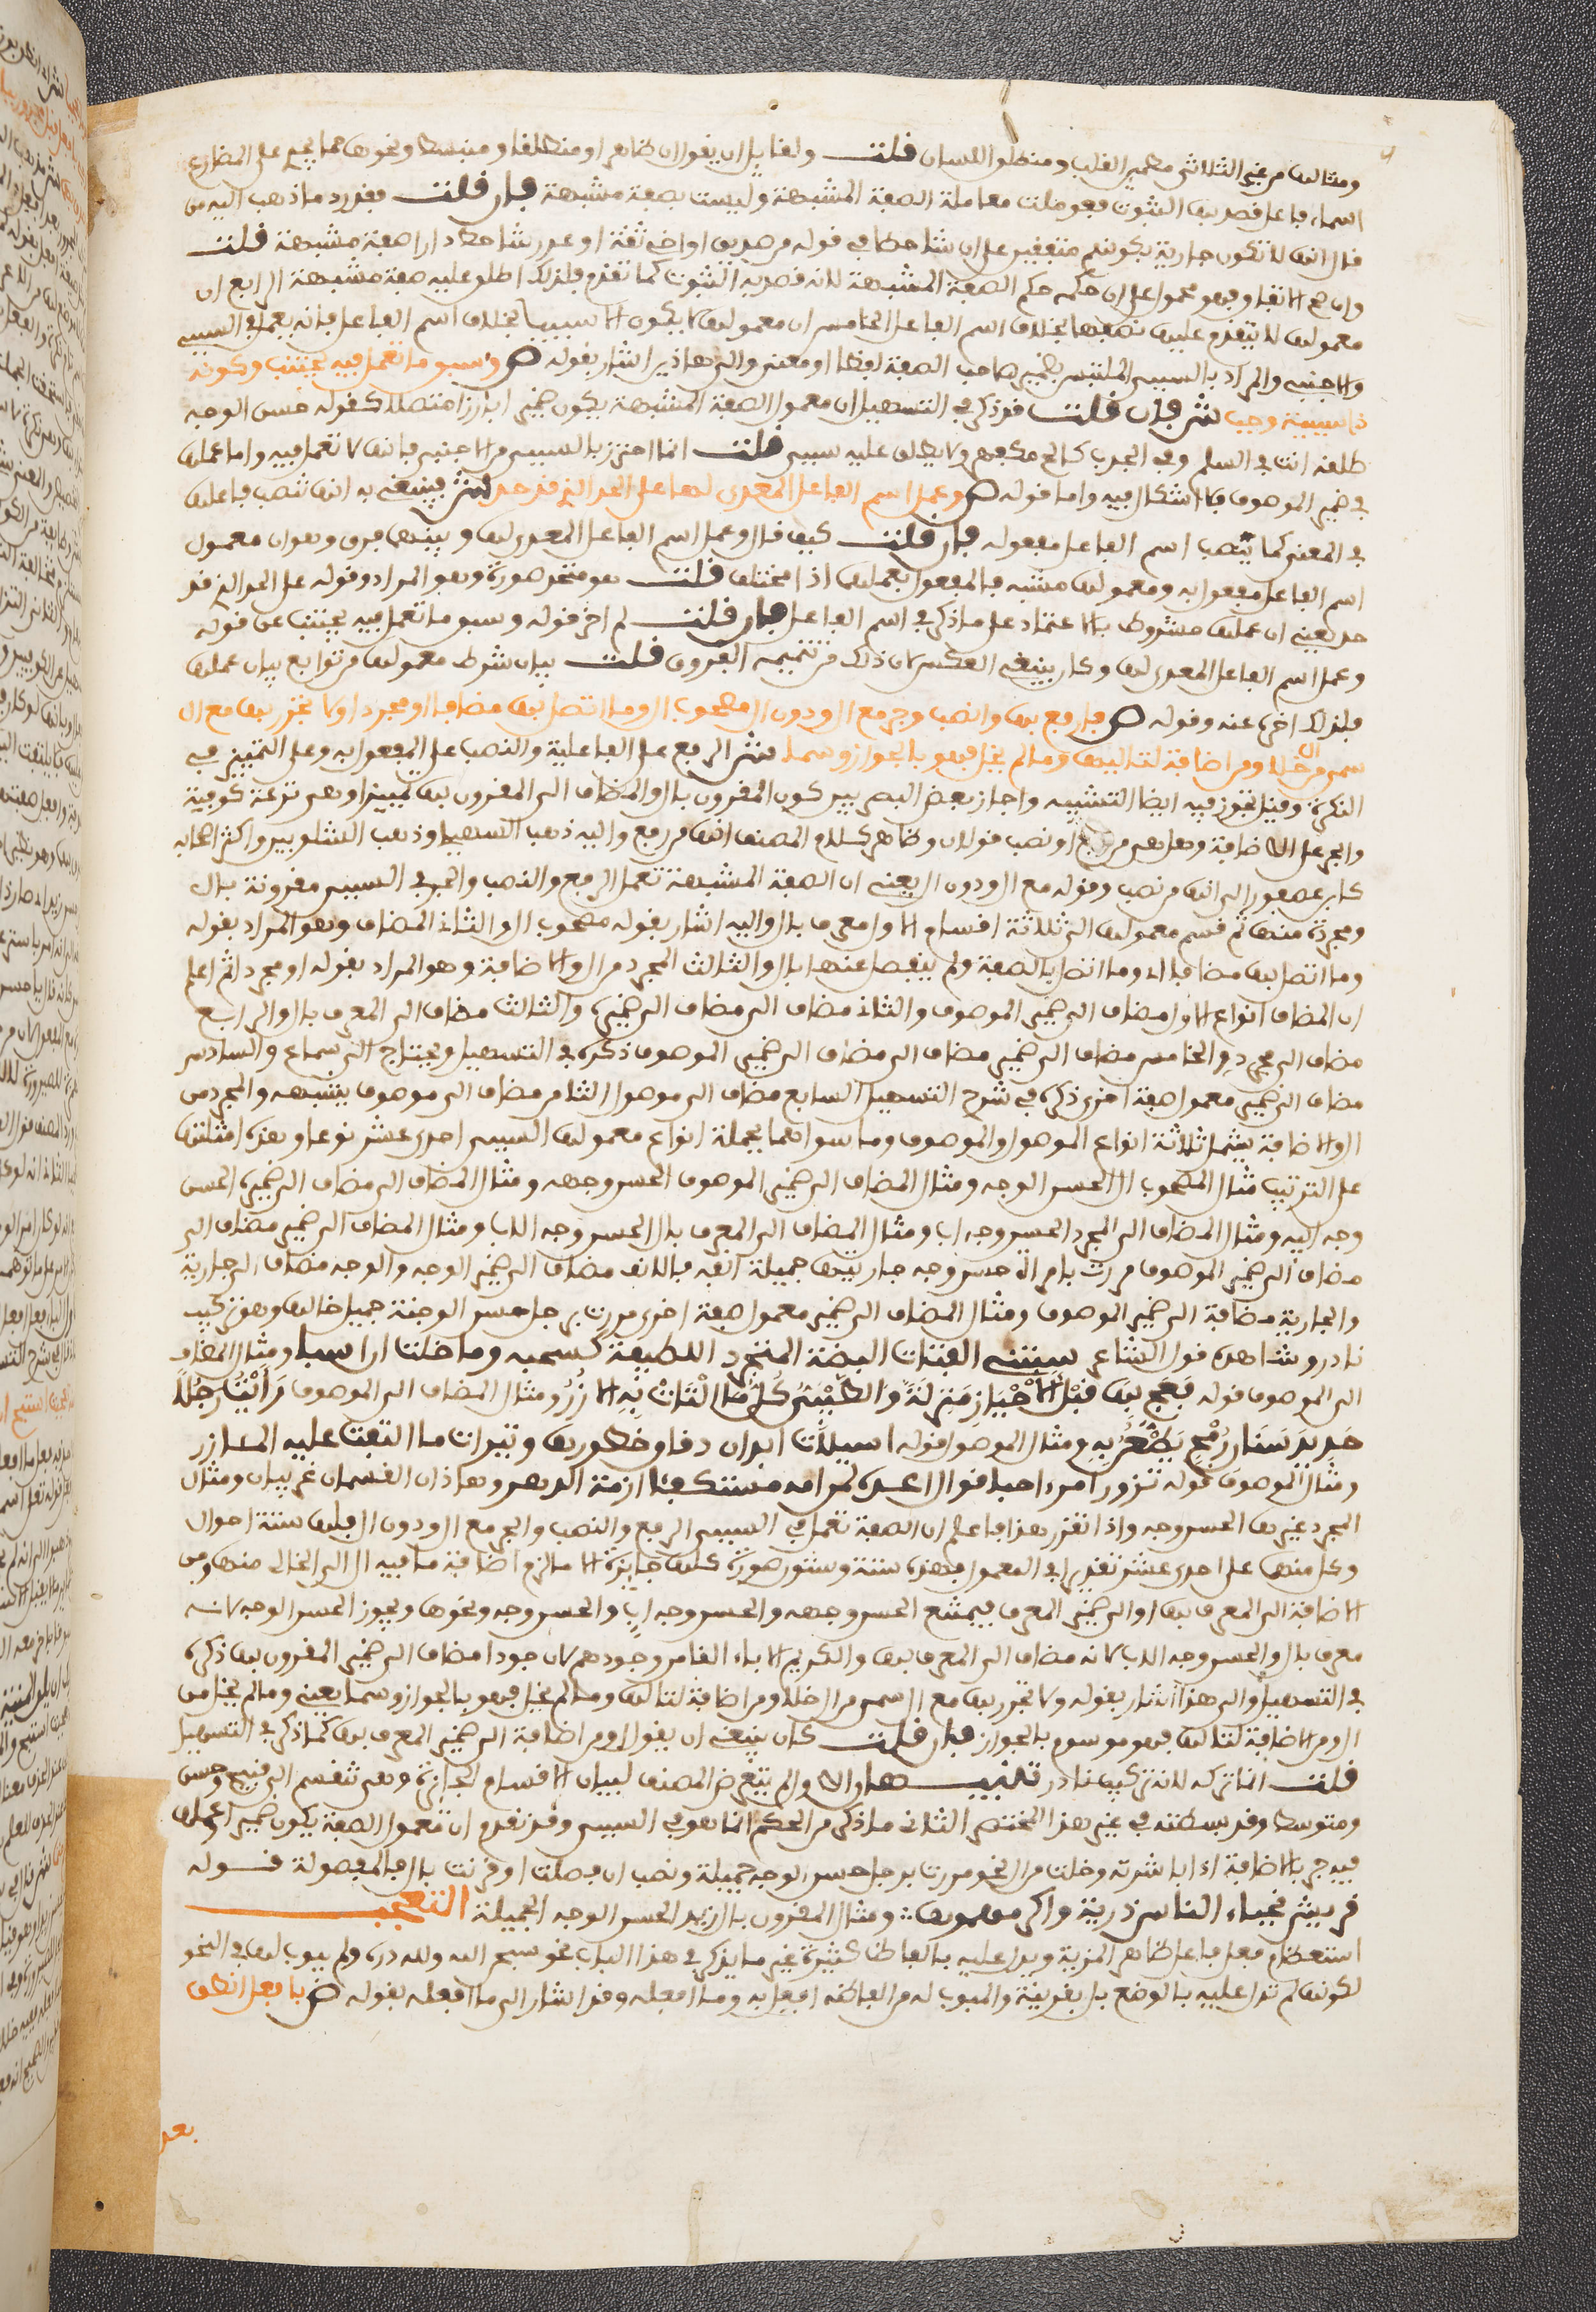 ومثالها من غير الثلاثي مطمئن القلب ومنطلق اللسان قلت ولقائل ان يقول ان ضامرا ومنطلقا ومنبسطا ونحوها مما يجري على المضارع
اسماء فاعل قصد بها الثبوت فعوملت معاملة الصفة المشبهة وليست بصفة مشبهة فان قلت فقد رد ما ذهب اليه من
قال انها لا تكون جارية بكونهم متفقين على ان شاحطا في قوله من صديق او اخي ثقة او عدو شاحط دارا صفة مشبهة قلت
وان صح الاتفاق فهو محمول على ان حكمه حكم الصفة المشبهة لانه قصد به الثبوت كما تقدم فلذلك اطلق عليه صفة مشبهة الرابع ان
معمولها لا يتقدم عليها لضعفها بخلاف اسم الفاعل الخامس ان معمولها لا يكون الا سببيا بخلاف اسم الفاعل فانه يعمل في السببي
والاجنبي والمراد بالسببي الملتبس بضمير صاحب الصفة لفظا او معنى والى هاذين اشار بقوله ص وسبق ما تعمل فيه مجتنب وكونه
ذا سببية وجب ش فان قلت قد ذكر في التسهيل ان معمول الصفة المشبهة يكون ضميرا بارزا متصلا كقوله حسن الوجه
طلقه انت في السلم وفي الحرب كالح مكفهر ولا يطلق عليه سببي قلت انما احترز بالسببي من الاجنبي فانها لا تعمل فيه واما عملها
في ضمير الموصوف فلا اشكال فيه واما قوله ص وعمل اسم الفاعل المعدى لها على الحد الذي قد حد ش فينبغي به انها تنصب فاعلها
في المعنى كما ينصب اسم الفاعل مفعوله فان قلت كيف قال وعمل اسم الفاعل المعدى لها وبينهما فرق وهو ان معمول
اسم الفاعل مفعول به ومعمولها مشبه بالمفعول فعملها اذا مختلف قلت هو متحد صورة وهو المراد وقوله على الحد الذي قد
حد يعني ان عملها مشروط بالاعتماد على ما ذكر في اسم الفاعل فان قلت لم اخر قوله وسبق ما تعمل فيه مجتنب عن قوله
وعمل اسم الفاعل المعدى لها وكان ينبغي العكس لان ذلك من تتميم الفروق قلت بيان شرط معمولها من توابع بيان عملها
فلذلك اخره عنه وقوله ص فارفع بها وانصب وجر مع ال ودون ال مصحوب ال وما اتصل بها مضافا او مجردا ولا تجرر بها مع ال
سما من ال خلا ومن اضافة لتاليها وما لم يخل فهو بالجواز وسما ش الرفع على الفاعلية والنصب على المفعول به وعلى التمييز في
النكرة وقيل يجوز فيه ايضا التشبيه واجاز بعض البصريين كون المقرون بال والمضاف الى المقرون بها تمييزا وهي نزعة كوفية
والجر على الاضافة وهل هي من رفع او نصب قولان وظاهر كلام المصنف انها من رفع واليه ذهب السهيلي وذهب الشلوبين واكثر اصحابه
كابن عصفور الى انها من نصب وقوله مع ال ودون ال يعني ان الصفة المشبهة تعمل الرفع والنصب والجر في السببي مقرونة بال
ومجردة منها ثم قسم معمولها الى ثلاثة اقسام الاول معرف بال واليه اشار بقوله مصحوب ال والثاني المضاف وهو المراد بقوله
وما اتصل بها مضافا اي وما اتصل بالصفة ولم ينفصل عنها بال والثالث المجرد من ال والاضافة وهو المراد بقوله او مجردا ثم اعلم
ان المضاف انواع الاول مضاف الى ضمير الموصوف والثاني مضاف الى مضاف الى ضميره والثالث مضاف الى المعرف بال والرابع
مضاف الى مجرد والخامس مضاف الى ضمير مضاف الى مضاف الى ضمير الموصوف ذكره في التسهيل ويحتاج الى سماع والسادس
مضاف الى ضمير معمول صفة اخرى ذكره في شرح التسهيل السابع مضاف الى موصول الثامن مضاف الى موصوف يشبهه والمجرد من
ال والاضافة يشمل ثلاثة انواع الموصول والموصوف وما سواهما فجملة انواع معمولها السببي احدى عشر نوعا وهذه امثلتها
على الترتيب مثال المصحوب ال الحسن الوجه ومثال المضاف الى ضمير الموصوف الحسن وجهه ومثال المضاف الى مضاف الى ضميره الحسن
وجه ابيه ومثال المضاف الى المجرد الحسن وجه اب ومثال المضاف الى المعرف بال الحسن وجه الاب ومثال المضاف الى ضمير مضاف الى
مضاف الى ضمير الموصوف مررت بامراة حسن وجه جاريتها جميلة انفه فالانف مضاف الى ضمير الوجه والوجه مضاف الى جارية
والجارية مضافة الى ضمير الموصوف ومثال المضاف الى ضمير معمول صفة اخرى مررت برجل حسن الوجنة جميل خالها وهو تركيب
نادر وشاهده قول الشاعر سبتني الفتاة البضة المتجرد اللطيفة كشحه وما خلت ان اسبا ومثال المضاف
الى الموصول قوله فعج بها قبل الاخيار منزلة والطيبي كل ما التاثت به الازر ومثال المضاف الى الموصوف رايت رجلا
حديد سنان رمح يطعن به ومثال الموصول قوله اسيلات ابدان دقاق خصورها وثيرات ما التفت عليه المـازر
ومثال الموصوف قوله تزور امرءا جما نوال اعده لمن امه مستكفيا ازمة الدهر وهاذان القسمان غريبان ومثال
المجرد غيرها الحسن وجه واذا تقرر هذا فاعلم ان الصفة تعمل في السببي الرفع والنصب والجر مع ال ودون ال فلها ستة احوال
وكل منها على احدى عشر تقديرا في المعمول فهذه ستة وستون صورة كلها جايزة الا ما لزم اضافة ما فيه ال الى الخالي منها ومن
الاضافة الى المعرف بها او الى ضمير المعرف فيمتنع الحسن وجهه والحسن وجه اب والحسن وجه ونحوها ويجوز الحسن الوجه لانـه
معرف بال والحسن وجه الاب لانه مضاف الى المعرف بها والكريم الاباء الغامر جودهم لان جودا مضاف الى ضمير المقرون بها ذكره
في التسهيل والى هذا اشار بقوله ولا تجرر بها مع ال سمى من ال خلا ومن اضافة لتاليها وما لم يخل فهو بالجواز وسما يعني وما لم يخل من
ال ومن الاضافة لتاليها فهو موسوم بالجواز فان قلت كان ينبغي ان يقول او من اضافة الى ضمير المعرف بها كما ذكر في التسهيل
قلت انما تركه لانه تركيب نادر تنبيـهان الاول لم يتعرض المصنف لبيان الاقسام الجايزة وهي تنقسم الى قبيح وحسن
ومتوسط وقد بسطته في غير هذا المختصر الثاني ما ذكر من الحكم انما هو في السببي وقد تقدم ان معمول الصفة يكون ضميرا وعملها
فيه جر بالاضافة اذا باشرته وخلت من ال نحو مررت برجل حسن الوجه جميله ونصب ان فصلت او قرنت بال فالمفصولة قـوله
قريش نجباء الناس ذرية واكرمهموها ؞ ومثال المقرون بال زيد الحسن الوجه الجميله التعجـب
استعظام فعل فاعل ظاهر المزية ويدل عليه بالفاظ كثيرة غير ما يذكر في هذا الباب نحو سبحن الله ولله دره ولم يبوب لها في النحو
لكونها لم تدل عليه بالوضع بل بقرينة والمبوب له من الفاظه افعل به وما افعله وقد اشار الى ما افعله بقوله ص بافعل انطق
بعد